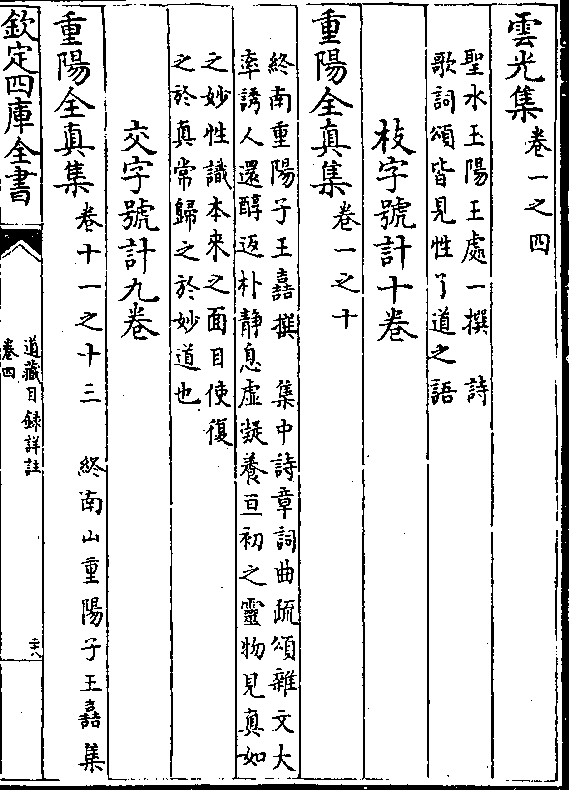 雲光集 卷一之四
聖水玉陽王處一撰 詩
歌詞頌皆見性了道之語
枝字號計十卷
重陽全真集 卷一之十
終南重陽子王嚞撰 集中詩章詞曲疏頌雜文大
率誘人還醇返朴靜息虛凝養亘初之靈物見真如
之妙性識本來之面目使復
之於真常歸之於妙道也
交字號計九卷
重陽全真集 卷十一之十三 終南山重陽子王嚞集
欽定四庫全書
道藏目錄詳註
卷四